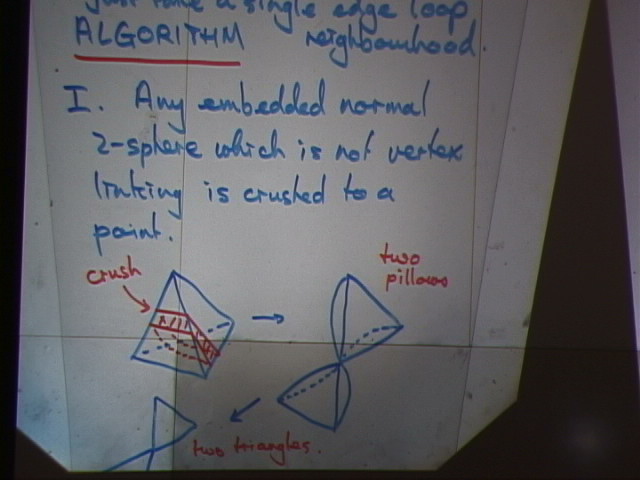 just have a single edge loop
ALGORITHM neighbourhood.
I. Any embedded normal
2-sphere which is not vertex
linking is crushed to a
point.
crush
two
pillows
two triangles.